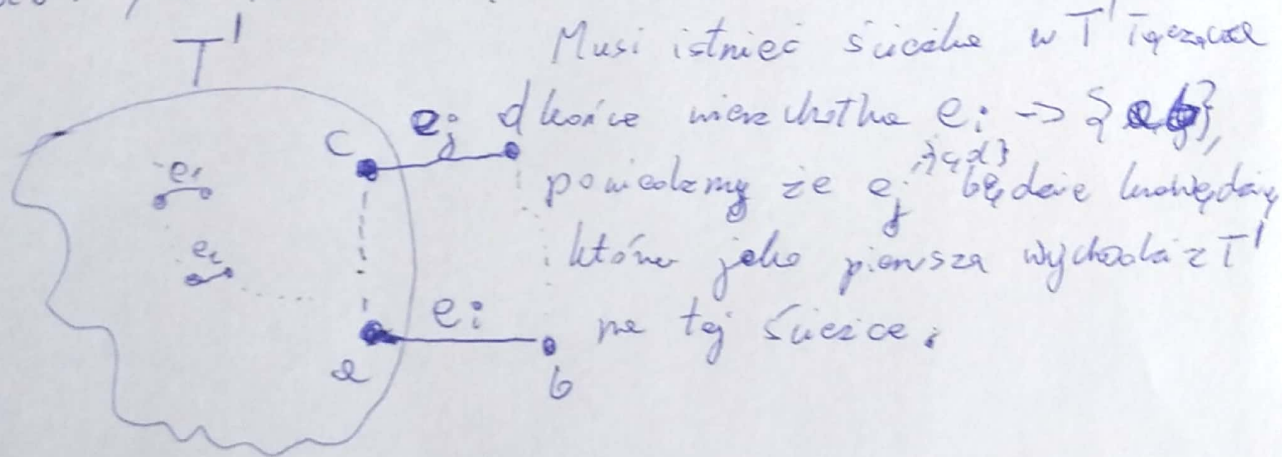 T'
Musi istnieć ścieżka w T' łącząca
końce wierzchołka e_i -> {a,b},
powiedzmy że e_j={c,d} będzie krawędzią
która jako pierwsza wychodzi z T'
na tej ścieżce.
c e_j d
e_1
e_2
a e_i b